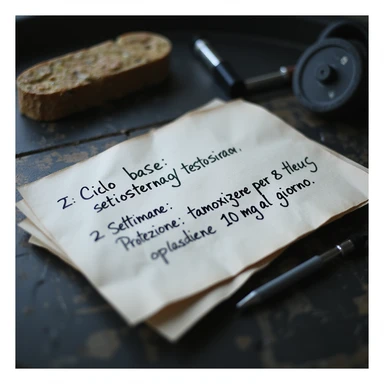 Z: Ciclo base:
setiosternag/ testosiraar.
2 Settimane:
Protezione: tamoxizere per 8 tleus
oplasdiene 10 mg al giorno.